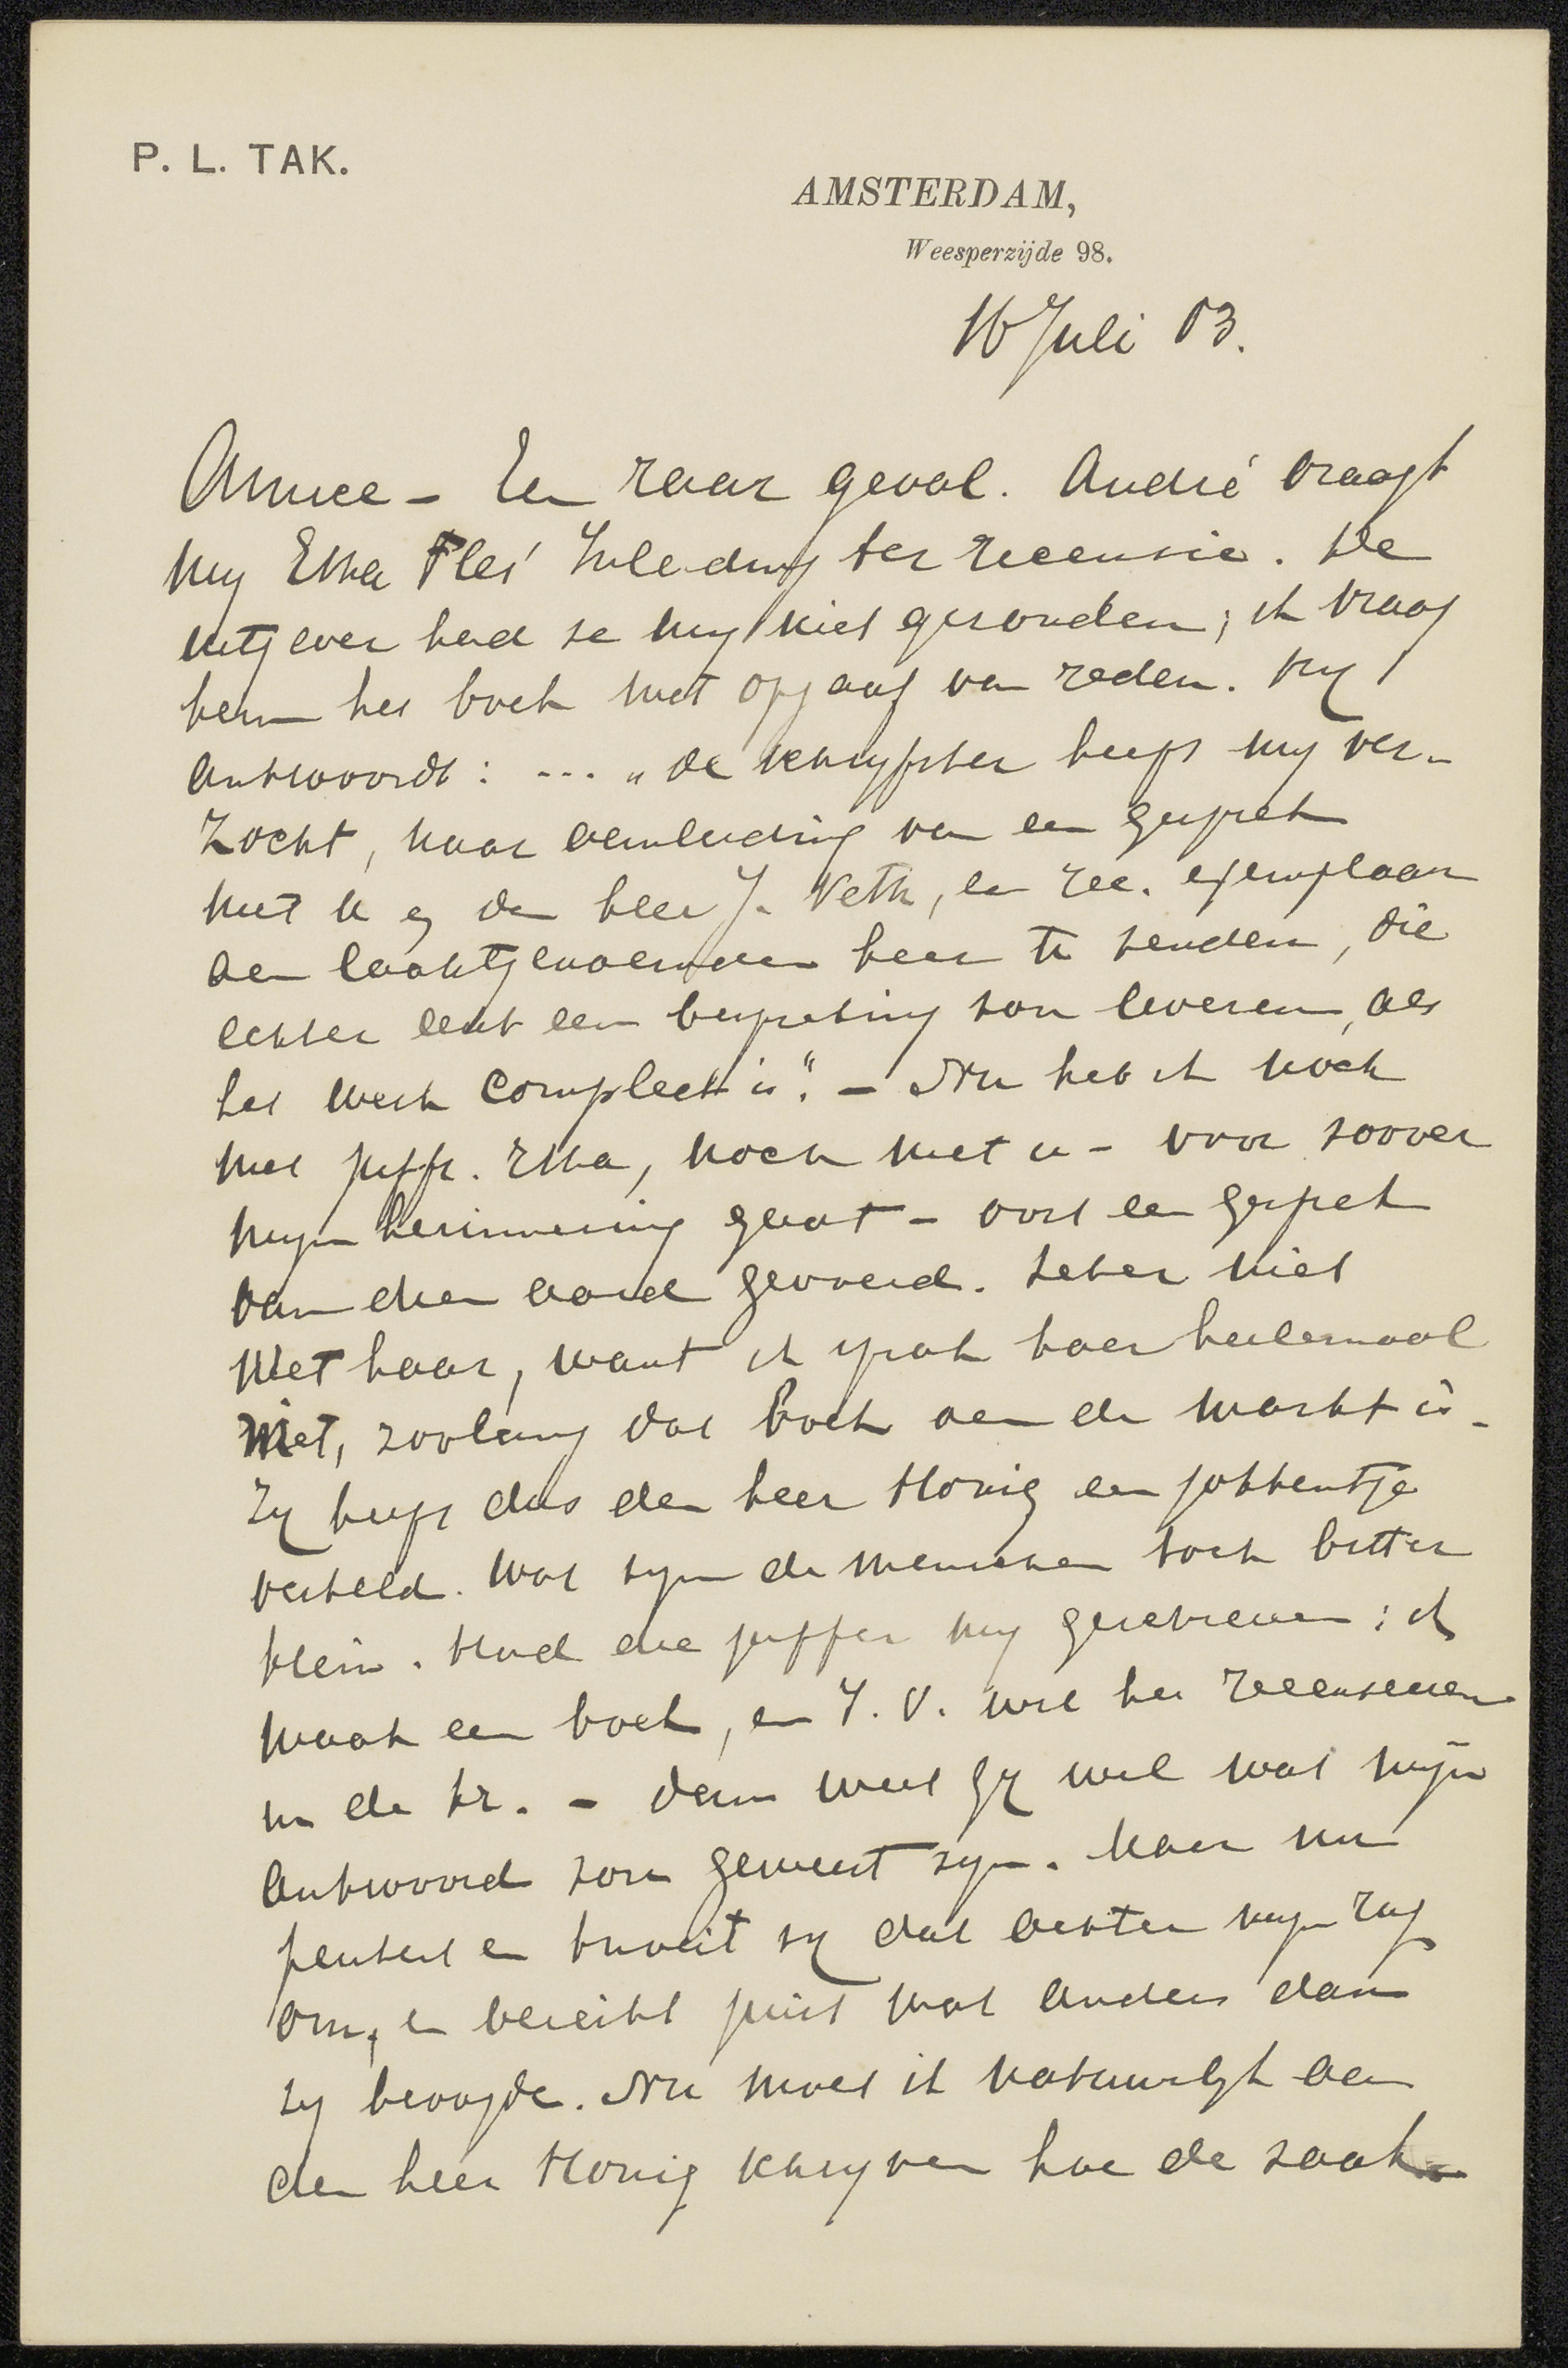 P. L. TAK.
AMSTERDAM,
Weesperzijde 98.
16 Juli 03.
Amice – Een raar geval. André vraagt
my Etha Fles' Inleiding ter recensie. De
uitgever had ze my niet gezonden; ik vraag
hem het boek met opgaaf van reden. Hy
antwoordt: ... „de schryfster heeft my ver-
zocht, naar aanleiding van een gesprek
met U en den heer J. Veth, een rec. exemplaar
aan laatstgenoemden heer te zenden, die
echter eerst een bespreking zou leveren, als
het werk compleet is". – Nu heb ik noch
met juffr. Etha, noch met u – voor zoover
myn herinnering gaat – ooit een gesprek
van dien aard gevoerd. Zeker niet
met haar, want ik sprak haar heelemaal
niet, zoolang dat boek aan de markt is.
Zy heeft dus den heer Honig een jokkentje
verteld. Wat zyn de menschen toch bitter
klein. Had die juffer my geschreven: ik
maak een boek, en J. V. wil het recenseeren
in de Kr. – dan weet gy wel wat mijn
antwoord zou geweest zyn. Maar nu
peutert en knoeit zy dat achter myn rug
om, en bereikt juist wat anders dan
zy beoogde. Nu moet ik natuurlyk aan
den heer Honig schryven hoe de zaak